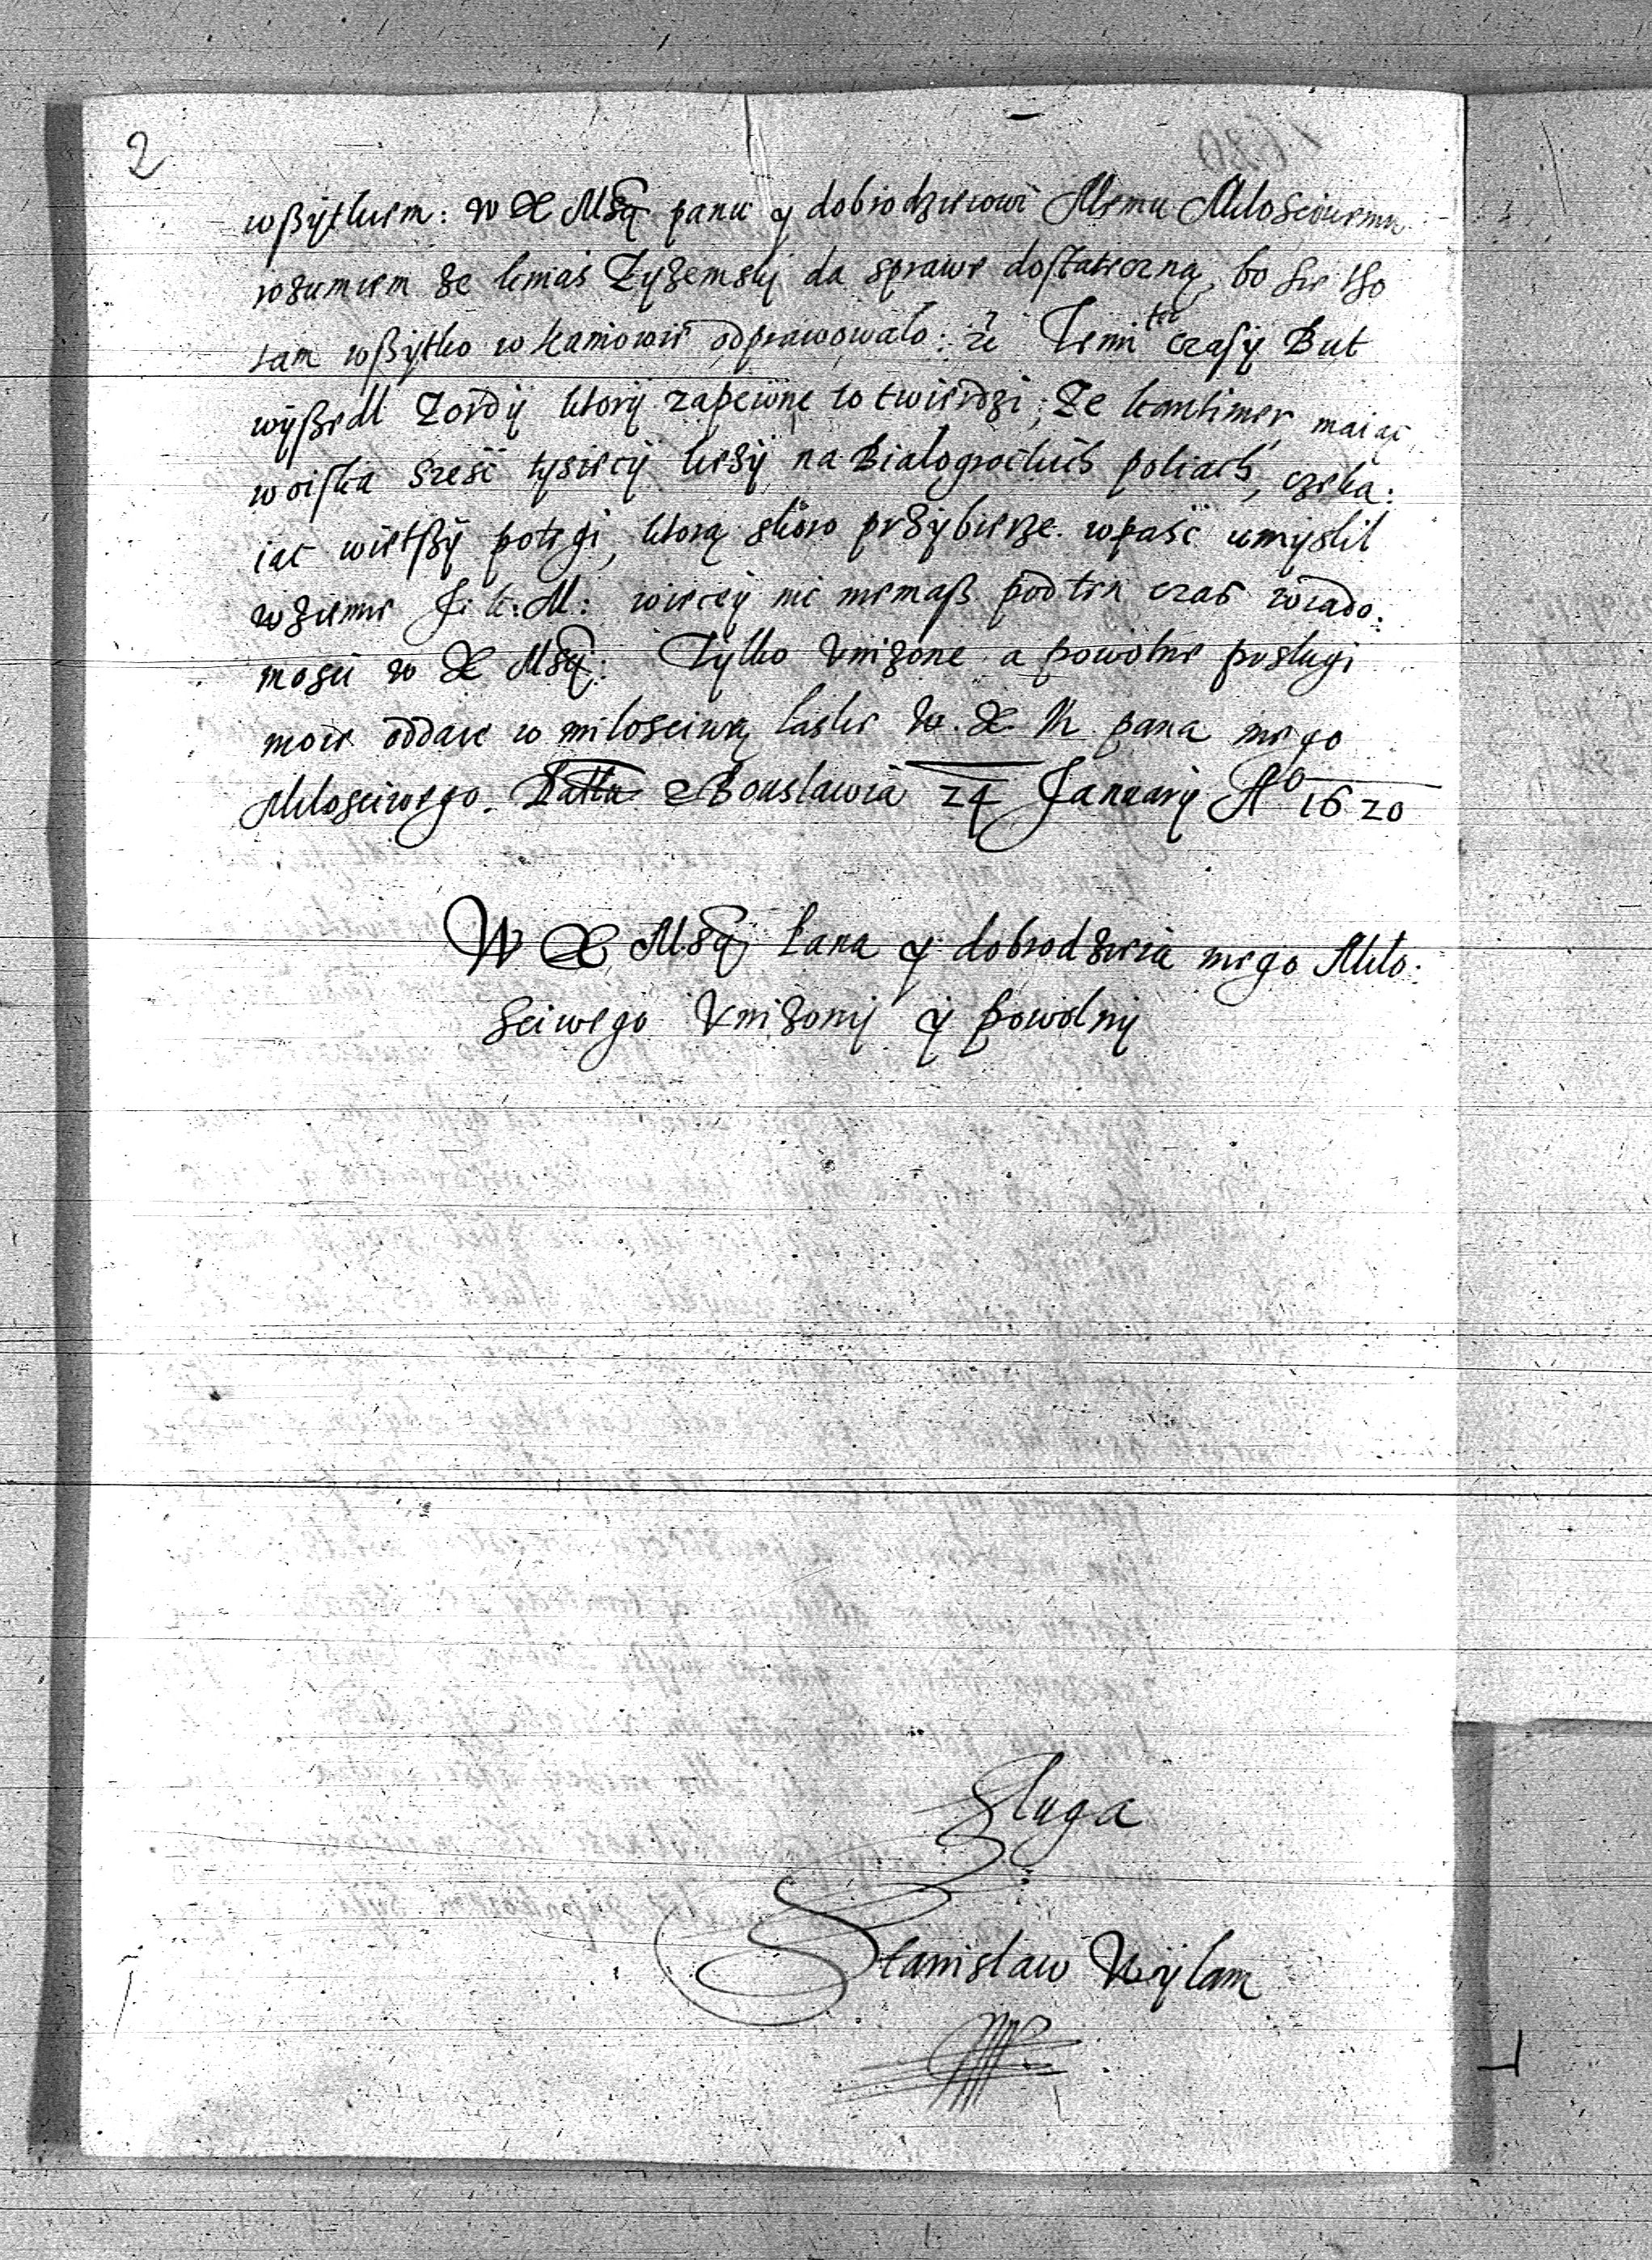 2
wßytkiem: W X Mscz panu y dobrodzieiowi Memu Milosciwemu
rozumiem ze kniaś Łyżemsky da sprawe dostateczną, bo sie tho
tam wßytko w kaniowie odprawowalo: że Temi tu czasy But
wyßedl Zordy ktory zapewne to twierdzi; że kantimer maiąc
woiska sześć tysięcy lezy na Bialogrockich poliach, czeka:
iąc wietszy potęgi, ktorą skoro przybierze wpaść umyslil
w ziemie J: k: M: wiecey nic niemasz pod ten czas wiado:
mosci w X Mscz: Tylko Unizone a powolne poslugi
moie oddaie w milosciwą laskę W. X M pana mego
Milosciwego. Datta z Bouslawia 24 January A° 1620
W X Mscz Pana y dobrodzieia mego Milo:
sciwego Unizony y powolny
Sluga
Stanislaw Wÿlam